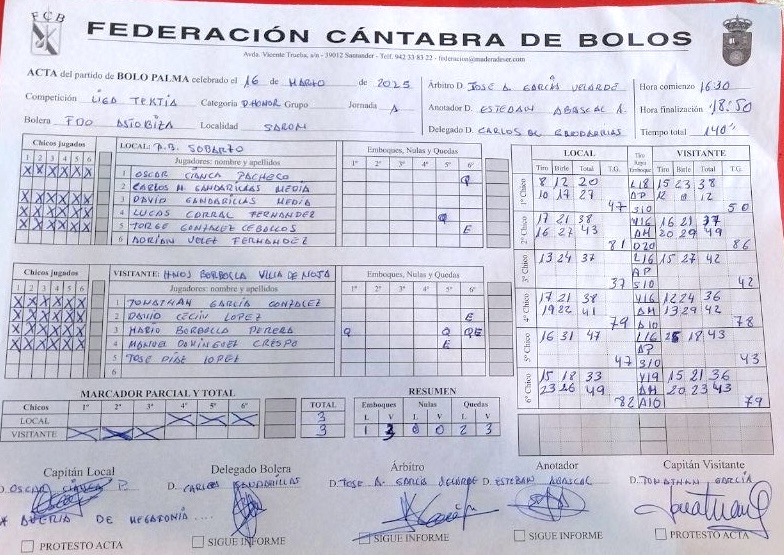 FCB
FEDERACIÓN CÁNTABRA DE BOLOS
Avda. Vicente Trueba, s/n - 39012 Santander - Telf. 942 33 83 22 - federacion@maderadeser.com
ACTA del partido de BOLO PALMA celebrado el 16 de MARZO de 2025
Árbitro D. JOSE A. GARCÍA VELARDE
Hora comienzo 16:30
Competición LIGA TERTIA Categoría D.HONOR Grupo Jornada 1
Anotador D. ESTEBAN ABASCAL A.
Hora finalización 18:50
Bolera FDO ASTOBIZA Localidad SARON
Delegado D. CARLOS GANDARILLAS
Tiempo total 140"
Chicos jugados
1 2 3 4 5 6
LOCAL: P.B. SOBARZO
Jugadores: nombre y apellidos
Emboques, Nulas y Quedas
1º 2º 3º 4º 5º 6º
1 OSCAR CIANCA PACHECO Q
2 CARLOS M. GANDARILLAS MEDIA
3 DAVID GANDARILLAS MEDIA
4 LUCAS CORRAL FERNANDEZ Q
5 JORGE GONZALEZ CEBALLOS E
6 ADRIAN VELEZ FERNANDEZ
Chicos jugados
1 2 3 4 5 6
VISITANTE: HNOS BORBOLLA VILLA DE NOJA
Jugadores: nombre y apellidos
Emboques, Nulas y Quedas
1º 2º 3º 4º 5º 6º
1 JONATHAN GARCÍA GONZALEZ
2 DAVID CECIN LOPEZ E
3 MARIO BORBOLLA PERERA Q Q QE
4 MANUEL DOMÍNGUEZ CRESPO E
5 JOSE DIAZ LOPEZ
6
LOCAL VISITANTE
Tiro Birle Total T.G. Tiro Raya Emboque Tiro Birle Total T.G.
1º Chico 8 12 20 L18 15 23 38
10 17 27 AP 12 0 12
47 S10 50
2º Chico 17 21 38 V16 16 21 37
16 27 43 AM 20 29 49
81 D20 86
3º Chico 13 24 37 L16 15 27 42
AP
37 S10 42
4º Chico 17 21 38 V16 12 24 36
19 22 41 AM 13 29 42
79 A10 78
5º Chico 16 31 47 L16 25 18 43
AP
47 S10 43
6º Chico 15 18 33 V19 15 21 36
23 26 49 AM 20 23 43
82 A10 79
MARCADOR PARCIAL Y TOTAL
Chicos 1º 2º 3º 4º 5º 6º
LOCAL X X X
VISITANTE X X X
TOTAL
3
3
RESUMEN
Emboques Nulas Quedas
L V L V L V
1 3 0 0 2 3
Capitán Local
D. OSCAR CIANCA P.
Delegado Bolera
D. CARLOS GANDARILLAS
Árbitro
D. JOSE A. GARCÍA VELARDE
Anotador
D. ESTEBAN ABASCAL
Capitán Visitante
D. JONATHAN GARCÍA
* AVERIA DE MEGAFONIA ....
PROTESTO ACTA
SIGUE INFORME
SIGUE INFORME
SIGUE INFORME
PROTESTO ACTA